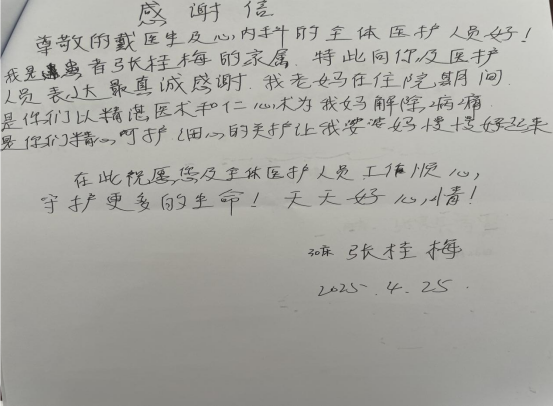 感谢信
尊敬的戴医生及心内科的全体医护人员好!
我是患者张桂梅的家属.特此向你及医护
人员表达最真诚感谢.我老妈在住院期间.
是你们以精湛医术和仁心术为我妈解除病痛.
是你们精心呵护细心的关护让我婆婆妈慢慢好起来
在此祝愿您及全体医护人员工作顺心,
守护更多的生命!天天好心情!
30床 张桂梅
2025.4.25.